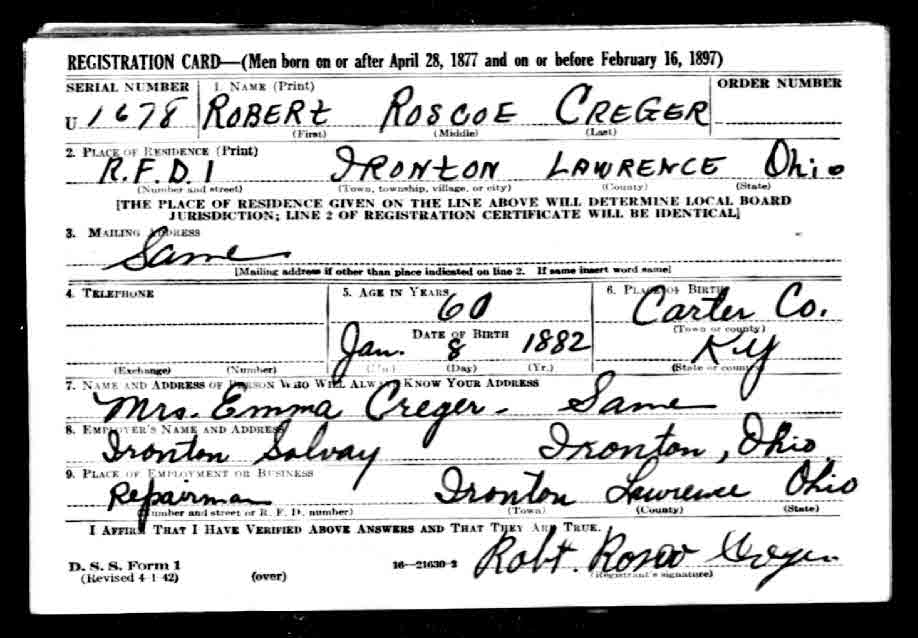 REGISTRATION CARD—(Men born on or after April 28, 1877 and on or before February 16, 1897)
SERIAL NUMBER 1. NAME (Print) ORDER NUMBER
U 1678 ROBERT ROSCOE CREGER
(First) (Middle) (Last)
2. PLACE OF RESIDENCE (Print)
R.F.D. 1 IRONTON LAWRENCE Ohio
(Number and street) (Town, township, village, or city) (County) (State)
[THE PLACE OF RESIDENCE GIVEN ON THE LINE ABOVE WILL DETERMINE LOCAL BOARD
JURISDICTION; LINE 2 OF REGISTRATION CERTIFICATE WILL BE IDENTICAL]
3. MAILING ADDRESS
Same
[Mailing address if other than place indicated on line 2. If same insert word same]
4. TELEPHONE 5. AGE IN YEARS 6. PLACE OF BIRTH
60 Carter Co.
DATE OF BIRTH (Town or county)
Jan. 8 1882 Ky
(Exchange) (Number) (Mo.) (Day) (Yr.) (State or country)
7. NAME AND ADDRESS OF PERSON WHO WILL ALWAYS KNOW YOUR ADDRESS
Mrs. Emma Creger - Same
8. EMPLOYER'S NAME AND ADDRESS
Ironton Solvay Ironton, Ohio
9. PLACE OF EMPLOYMENT OR BUSINESS
Repairman Ironton Lawrence Ohio
(Number and street or R. F. D. number) (Town) (County) (State)
I AFFIRM THAT I HAVE VERIFIED ABOVE ANSWERS AND THAT THEY ARE TRUE.
D. S. S. Form 1
(Revised 4-1-42) (over) 16—21630-2 Robt. Rosco Creger
(Registrant's signature)